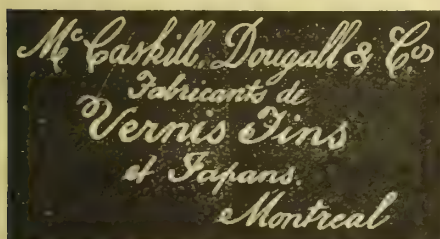 McCaskill, Dougall & Cos
Fabricants de
Vernis Fins
et Japans.
Montreal